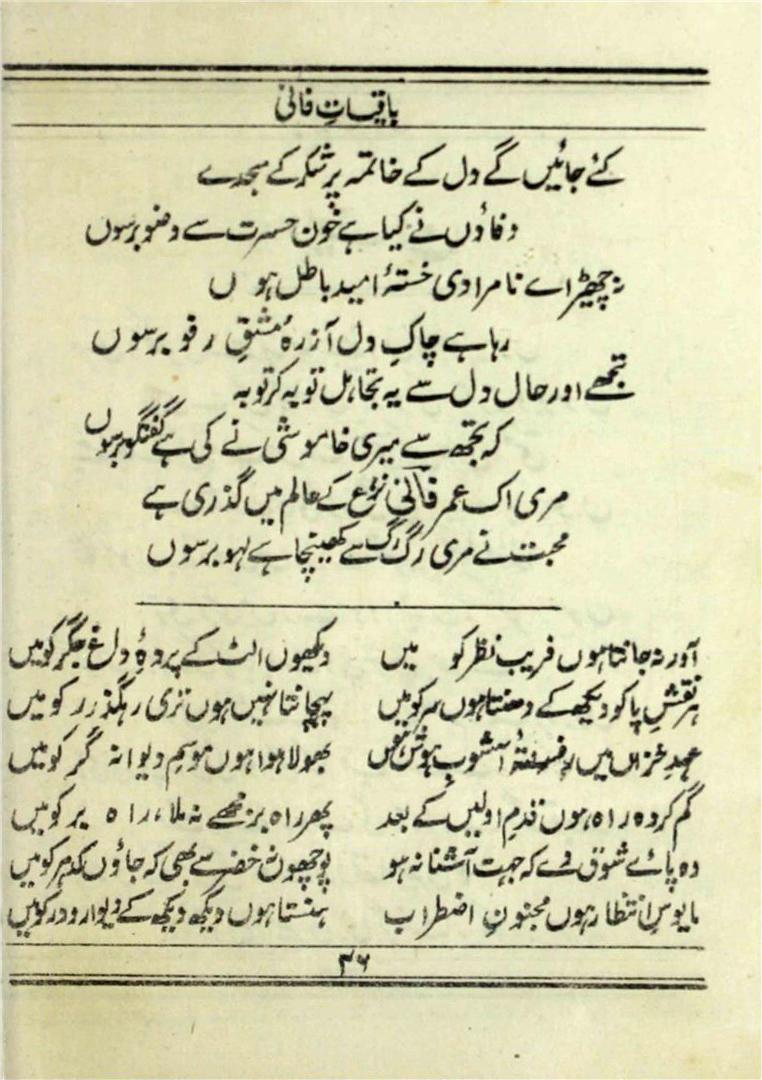 باقیاتِ فانی
کئے جائیں گے دل کے خاتمہ پر شکر کے سجدے
وفاؤں نے کیا ہے خونِ حسرت سے وضو برسوں
نہ چھیڑ اے نامرادی خستۂ امیدِ باطل ہوں
رہا ہے چاکِ دل آزردۂ مشقِ رفو برسوں
تجھے اور حال دل سے یہ تجاہل توبہ کر توبہ
کہ تجھ سے میری خاموشی نے کی ہے گفتگو برسوں
مری اک عمر فانی نزع کے عالم میں گذری ہے
محبت نے مری رگ رگ سے کھینچا ہے لہو برسوں
اور نہ جانتا ہوں فریب نظر کو میں دیکھوں الٹ کے پردۂ داغ جگر کو میں
ہر نقشِ پا کو دیکھ کے دھنتا ہوں سر کو میں پہچانتا نہیں ہوں تری رہگذر کو میں
عہدِ خزاں میں فسوں آشوبِ ہوش بھولا ہوا ہوں موسمِ دیوانہ گر کو میں
گم کردہ راہ ہوں قدمِ اولیں کے بعد پھر راہبر مجھے نہ ملا، راہ بر کو میں
وہ پائے شوق دے کہ جہت آشنا نہ ہو پوچھوں نہ خضر سے بھی کہ جاؤں کدھر کو میں
مایوسِ انتظار ہوں مجنونِ اضطراب ہنستا ہوں دیکھ دیکھ کے دیوار و در کو میں
۳۶